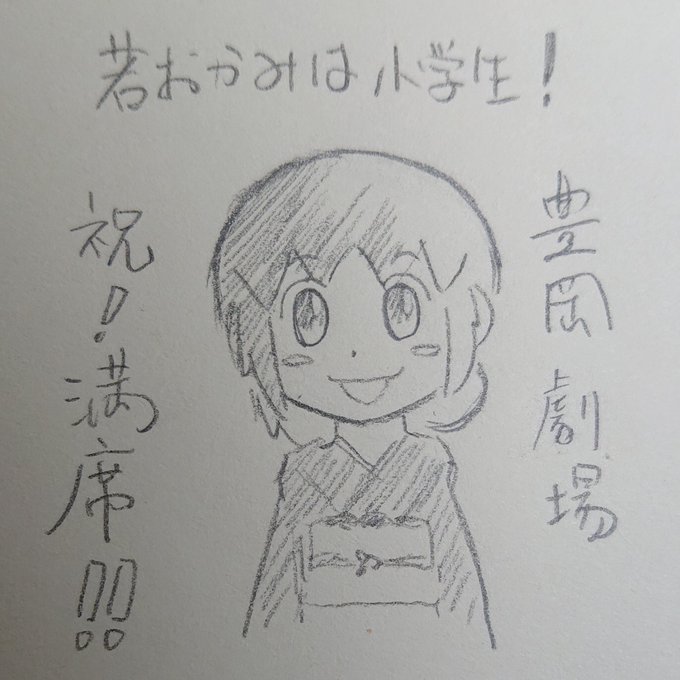 若おかみは小学生!
豊岡劇場
祝!満席!!